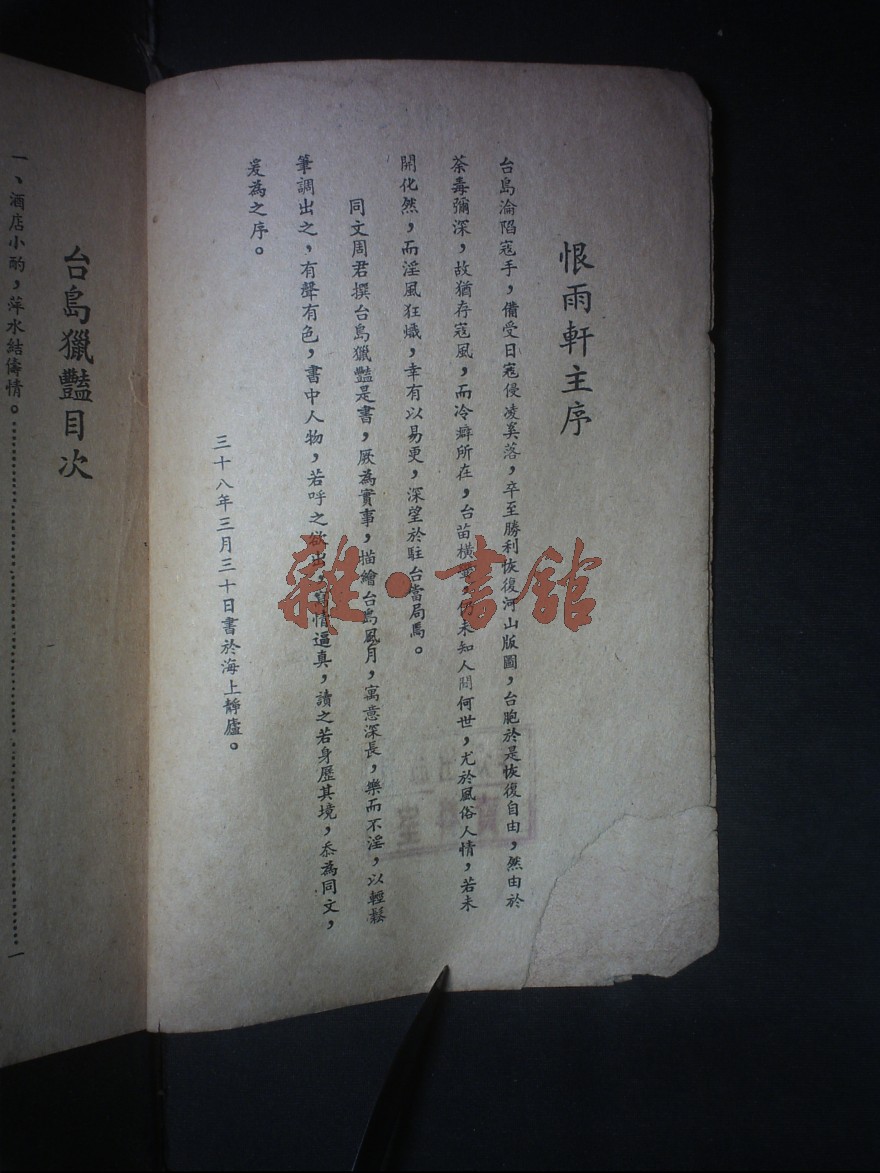 恨雨軒主序
台島淪陷寇手，備受日寇侵凌奚落，卒至勝利恢復河山版圖，台胞於是恢復自由，然由於
荼毒彌深，故猶存寇風，而冷癖所在，台苗橫，仍未知人間何世，尤於風俗人情，若未
開化然，而淫風狂熾，幸有以易更，深望於駐台當局焉。
同文周君撰台島獵豔是書，厥為實事，描繪台島風月，寓意深長，樂而不淫，以輕鬆
筆調出之，有聲有色，書中人物，若呼之欲出，寫情逼真，讀之若身歷其境，忝為同文，
爰為之序。
三十八年三月三十日書於海上靜廬。
台島獵豔目次
一、酒店小酌，萍水結儔情。……………………一
雜·書館
料室